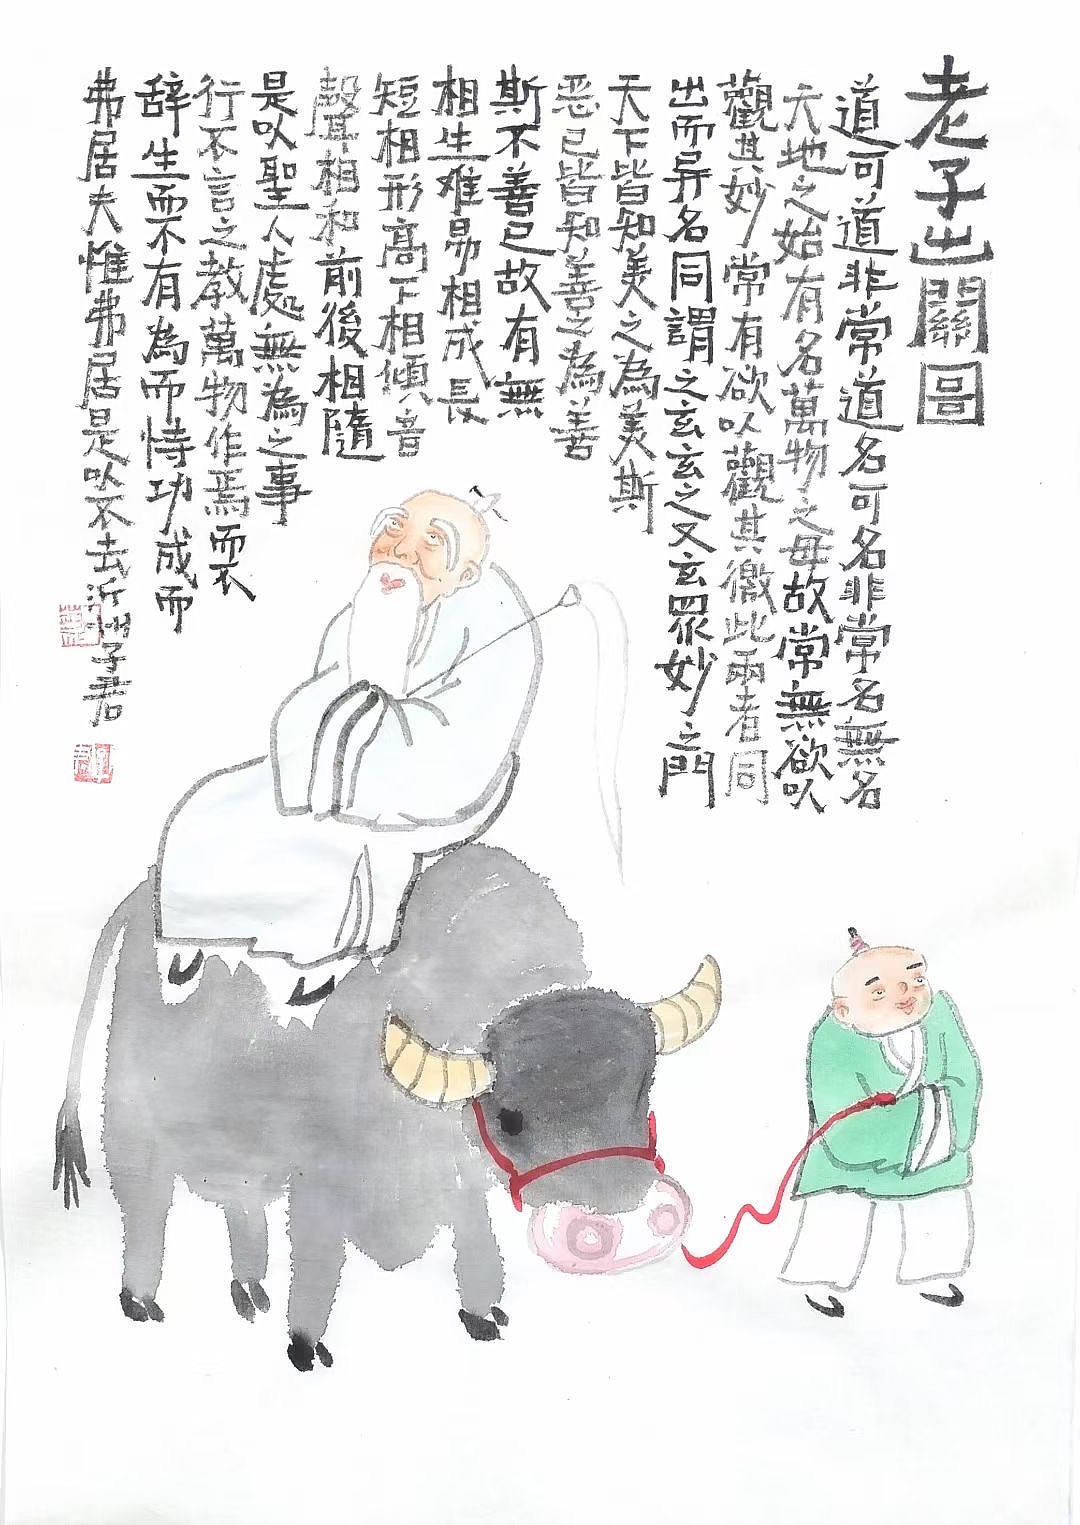 老子出關圖
道可道非常道名可名非常名無名
天地之始有名萬物之母故常無欲以
觀其妙常有欲以觀其徼此兩者同
出而异名同謂之玄玄之又玄眾妙之門
天下皆知美之為美斯
恶已皆知善之為善
斯不善已故有無
相生难易相成長
短相形高下相傾音
聲相和前後相隨
是以聖人處無為之事
行不言之教萬物作焉而不
辞生而不有為而恃功成而
弗居夫惟弗居是以不去沂州子君